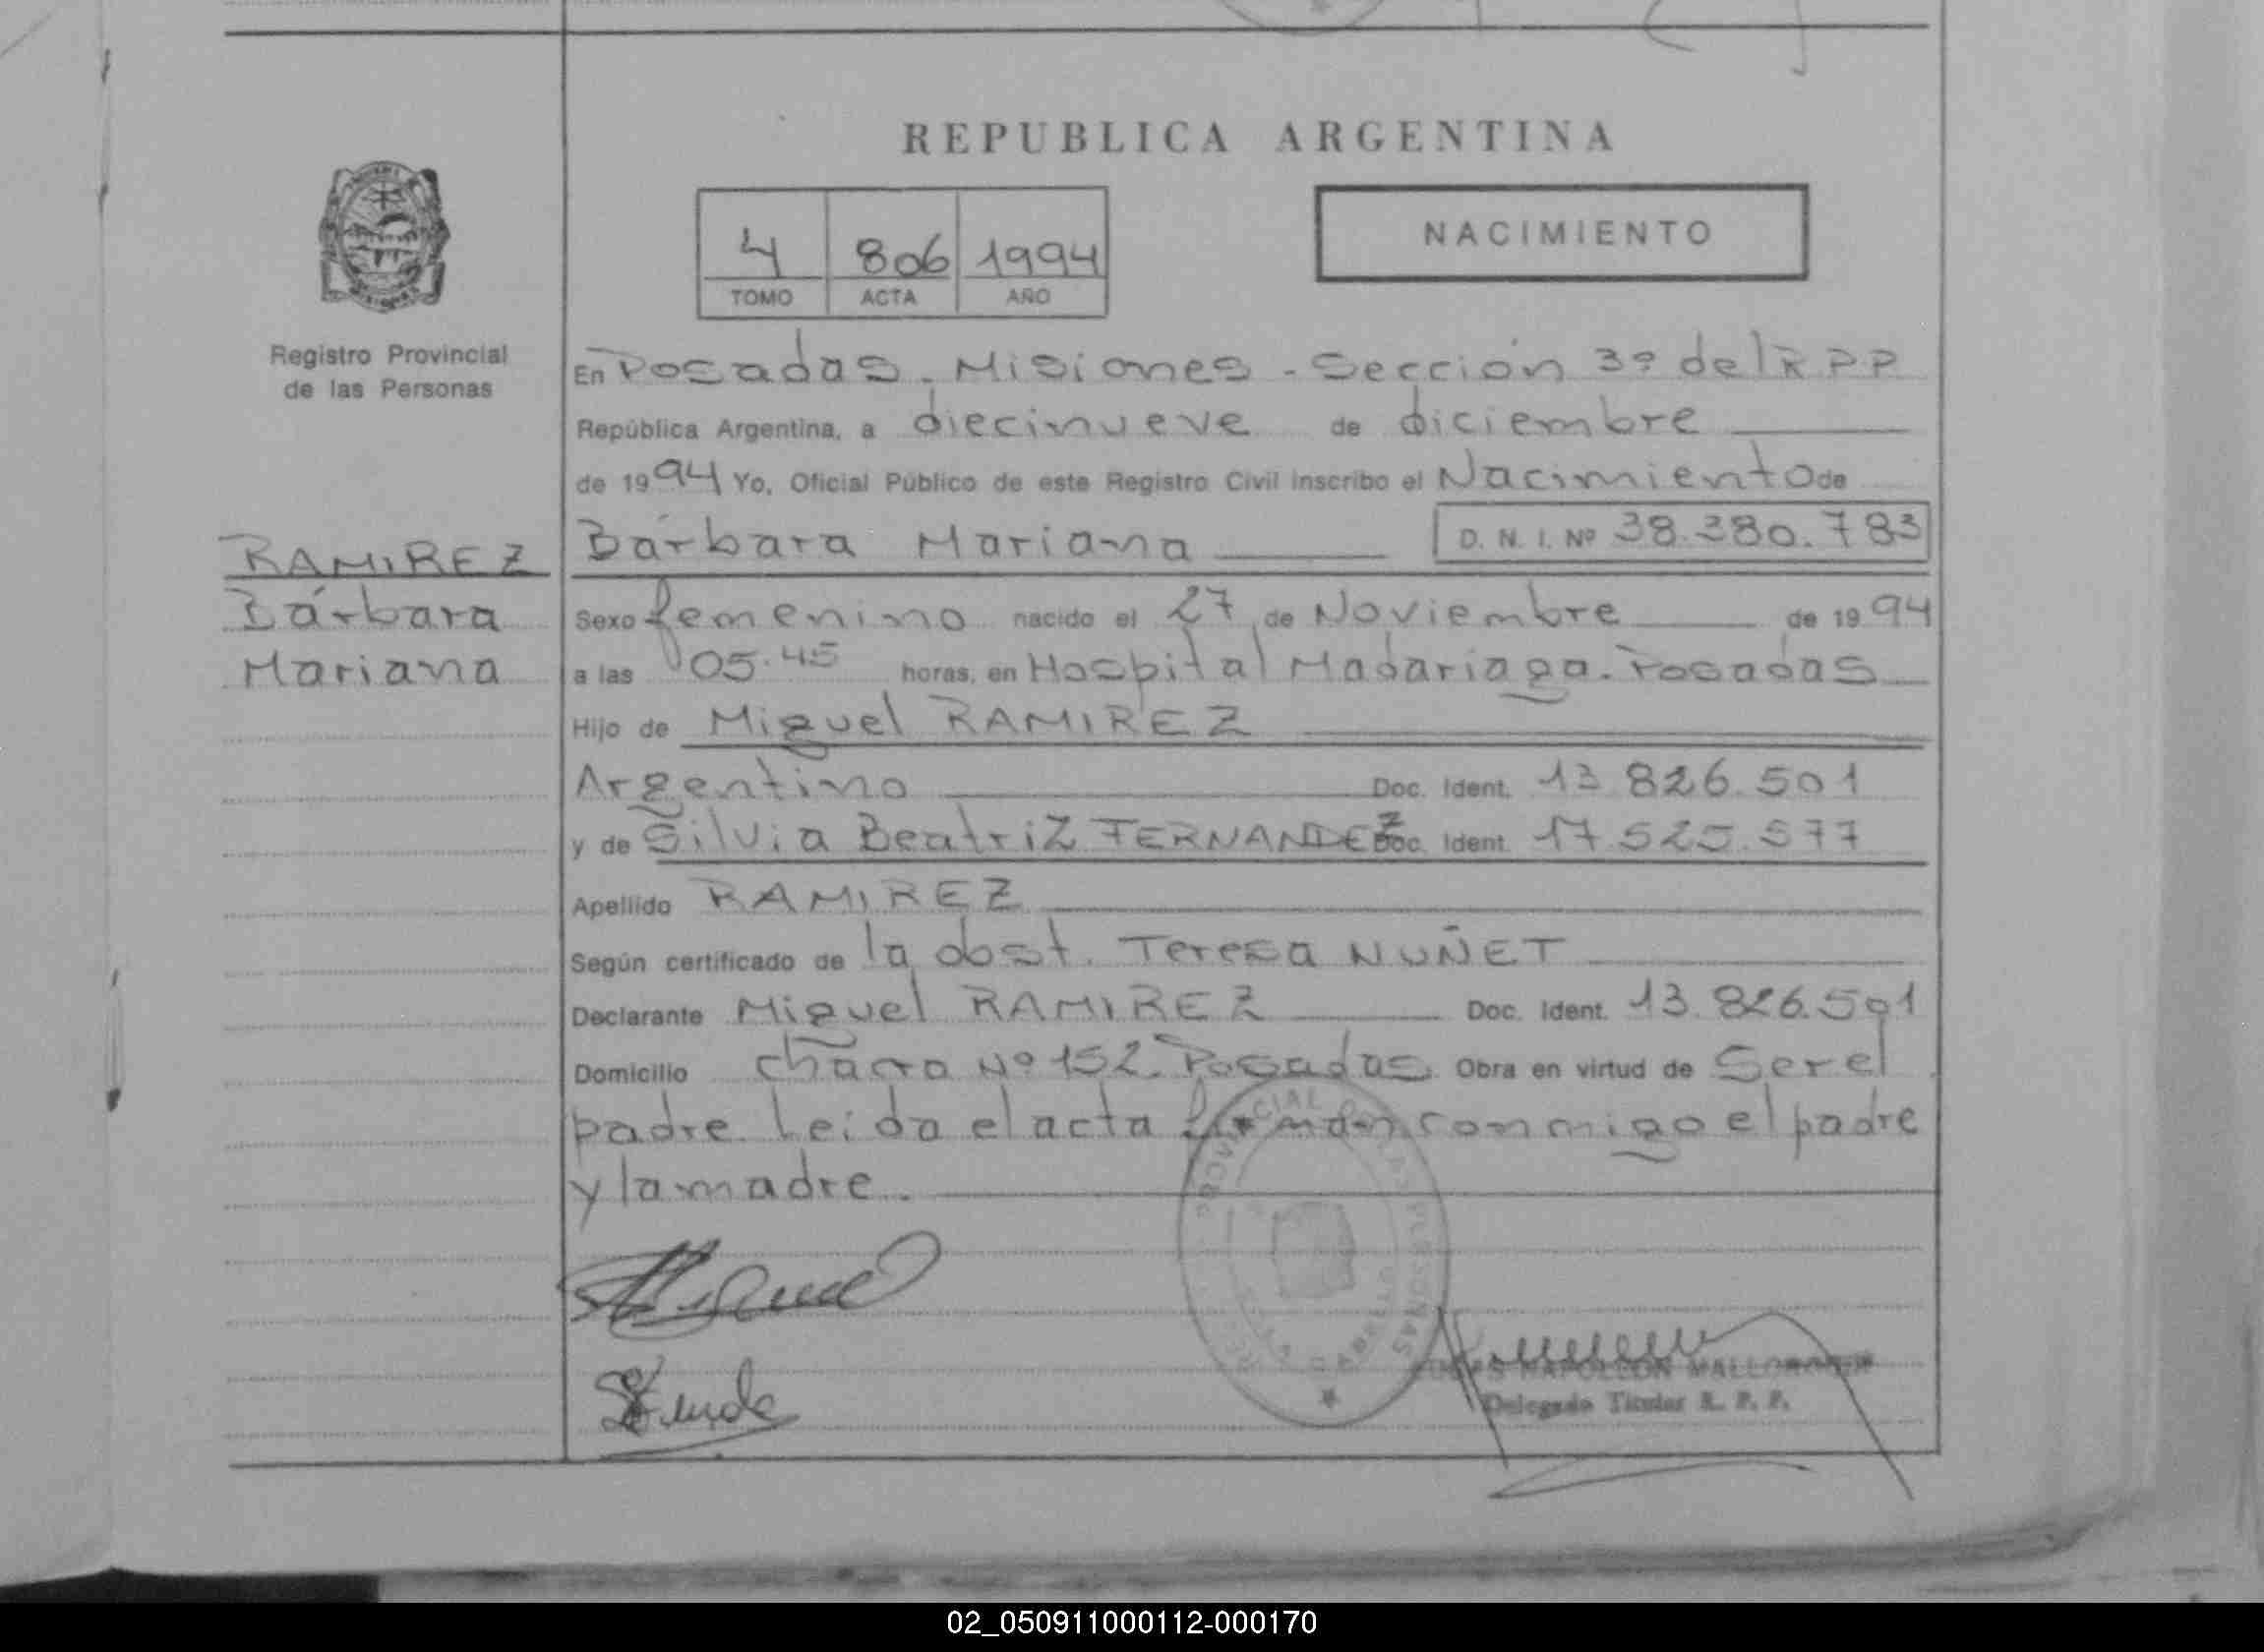 REPUBLICA ARGENTINA
4 806 1994
TOMO ACTA AÑO
NACIMIENTO
Registro Provincial
de las Personas
RAMIREZ
Bárbara
Mariana
En Posadas. Misiones - Sección 3º del RPP
República Argentina, a diecinueve de diciembre
de 1994 Yo, Oficial Público de este Registro Civil inscribo el Nacimiento de
Bárbara Mariana D. N. I. Nº 38.380.783
Sexo femenino nacido el 27 de Noviembre de 1994
a las 05.45 horas, en Hospital Madariaga. Posadas
Hijo de Miguel RAMIREZ
Argentino Doc. Ident. 13.826.501
y de Silvia Beatriz FERNANDEZ Doc. Ident. 17.525.577
Apellido RAMIREZ
Según certificado de la obst. Teresa NUÑET
Declarante Miguel RAMIREZ Doc. Ident. 13.826.501
Domicilio chacra Nº 152. Posadas Obra en virtud de Ser el
padre. Leida el acta firman conmigo el padre
y la madre.
Delegado Titular R. P. P.
02_050911000112-000170